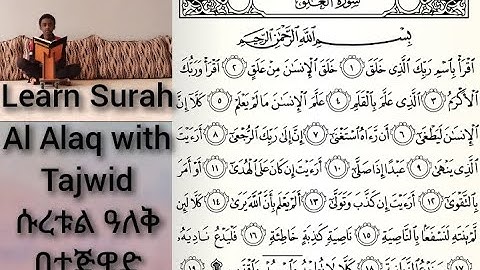 Learn Surah
Al Alaq with
Tajwid
ሱረቱል ዓለቅ
በተጅዊድ
سورة العلق
بِسْمِ اللَّهِ الرَّحْمَٰنِ الرَّحِيمِ
اقْرَأْ بِاسْمِ رَبِّكَ الَّذِي خَلَقَ ١ خَلَقَ الْإِنسَانَ مِنْ عَلَقٍ ٢ اقْرَأْ وَرَبُّكَ
الْأَكْرَمُ ٣ الَّذِي عَلَّمَ بِالْقَلَمِ ٤ عَلَّمَ الْإِنسَانَ مَا لَمْ يَعْلَمْ ٥ كَلَّا إِنَّ
الْإِنسَانَ لَيَطْغَىٰ ٦ أَن رَّآهُ اسْتَغْنَىٰ ٧ إِنَّ إِلَىٰ رَبِّكَ الرُّجْعَىٰ ٨ أَرَأَيْتَ
الَّذِي يَنْهَىٰ ٩ عَبْدًا إِذَا صَلَّىٰ ١٠ أَرَأَيْتَ إِن كَانَ عَلَى الْهُدَىٰ ١١ أَوْ أَمَرَ
بِالتَّقْوَىٰ ١٢ أَرَأَيْتَ إِن كَذَّبَ وَتَوَلَّىٰ ١٣ أَلَمْ يَعْلَم بِأَنَّ اللَّهَ يَرَىٰ ١٤ كَلَّا لَئِن
لَّمْ يَنتَهِ لَنَسْفَعًا بِالنَّاصِيَةِ ١٥ نَاصِيَةٍ كَاذِبَةٍ خَاطِئَةٍ ١٦ فَلْيَدْعُ نَادِيَهُ